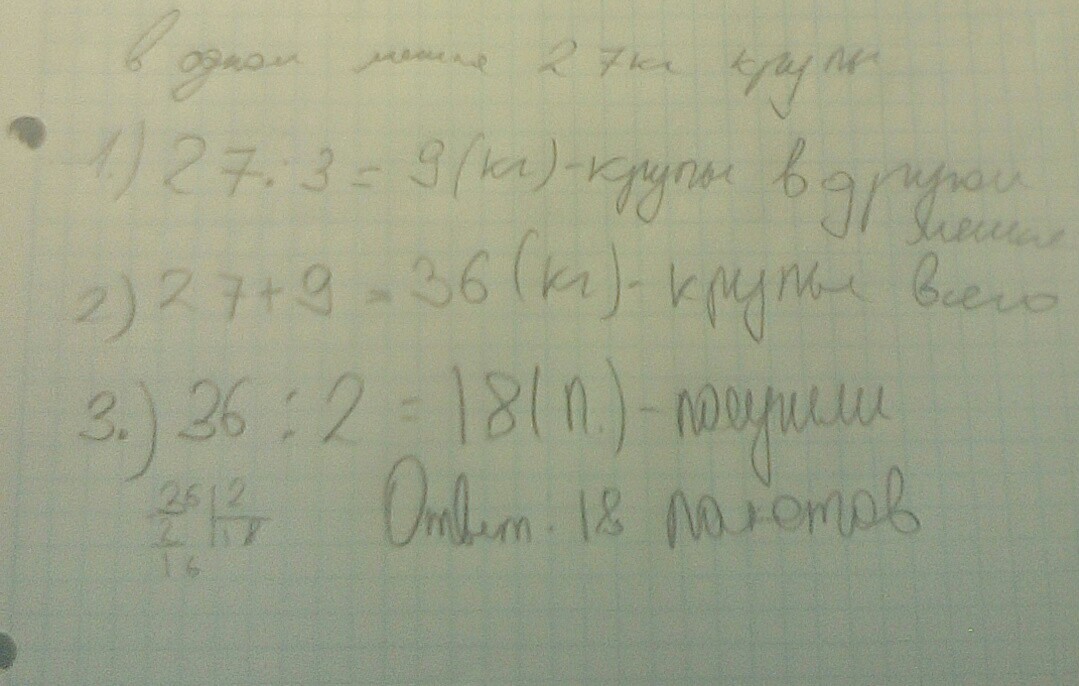 в одном мешке 27кг крупы
1.) 27:3 = 9(кг)-крупы в другом
мешке
2) 27+9 = 36(кг)-крупы всего
3.) 36 : 2 = 18(п.)-получили
36|2
2 18
16
Ответ. 18 пакетов